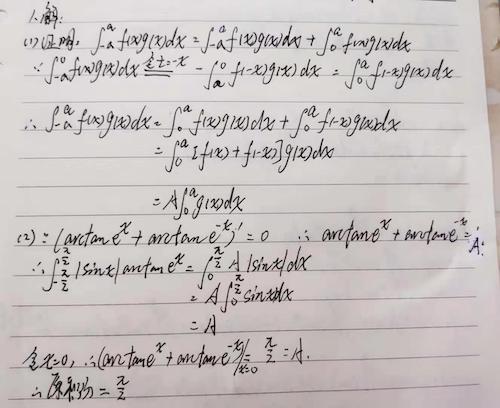 1.解:
(1)证明: ∫_{-a}^{a} f(x)g(x)dx = ∫_{-a}^{0} f(x)g(x)dx + ∫_{0}^{a} f(x)g(x)dx
∵ ∫_{-a}^{0} f(x)g(x)dx 令t=-x -∫_{a}^{0} f(-x)g(x)dx = ∫_{0}^{a} f(-x)g(x)dx
∴ ∫_{-a}^{a} f(x)g(x)dx = ∫_{0}^{a} f(x)g(x)dx + ∫_{0}^{a} f(-x)g(x)dx
= ∫_{0}^{a} [f(x)+f(-x)]g(x)dx
= A∫_{0}^{a} g(x)dx
(2) ∵ (arctane^{x} + arctane^{-x})' = 0 ∴ arctane^{x} + arctane^{-x} = A.
∴ ∫_{-π/2}^{π/2} |sinx| arctane^{x} = ∫_{0}^{π/2} A |sinx|dx
= A∫_{0}^{π/2} sinxdx
= A
令x=0, ∴ (arctane^{x} + arctane^{-x})|_{x=0} = π/2 = A.
∴ 原积分 = π/2